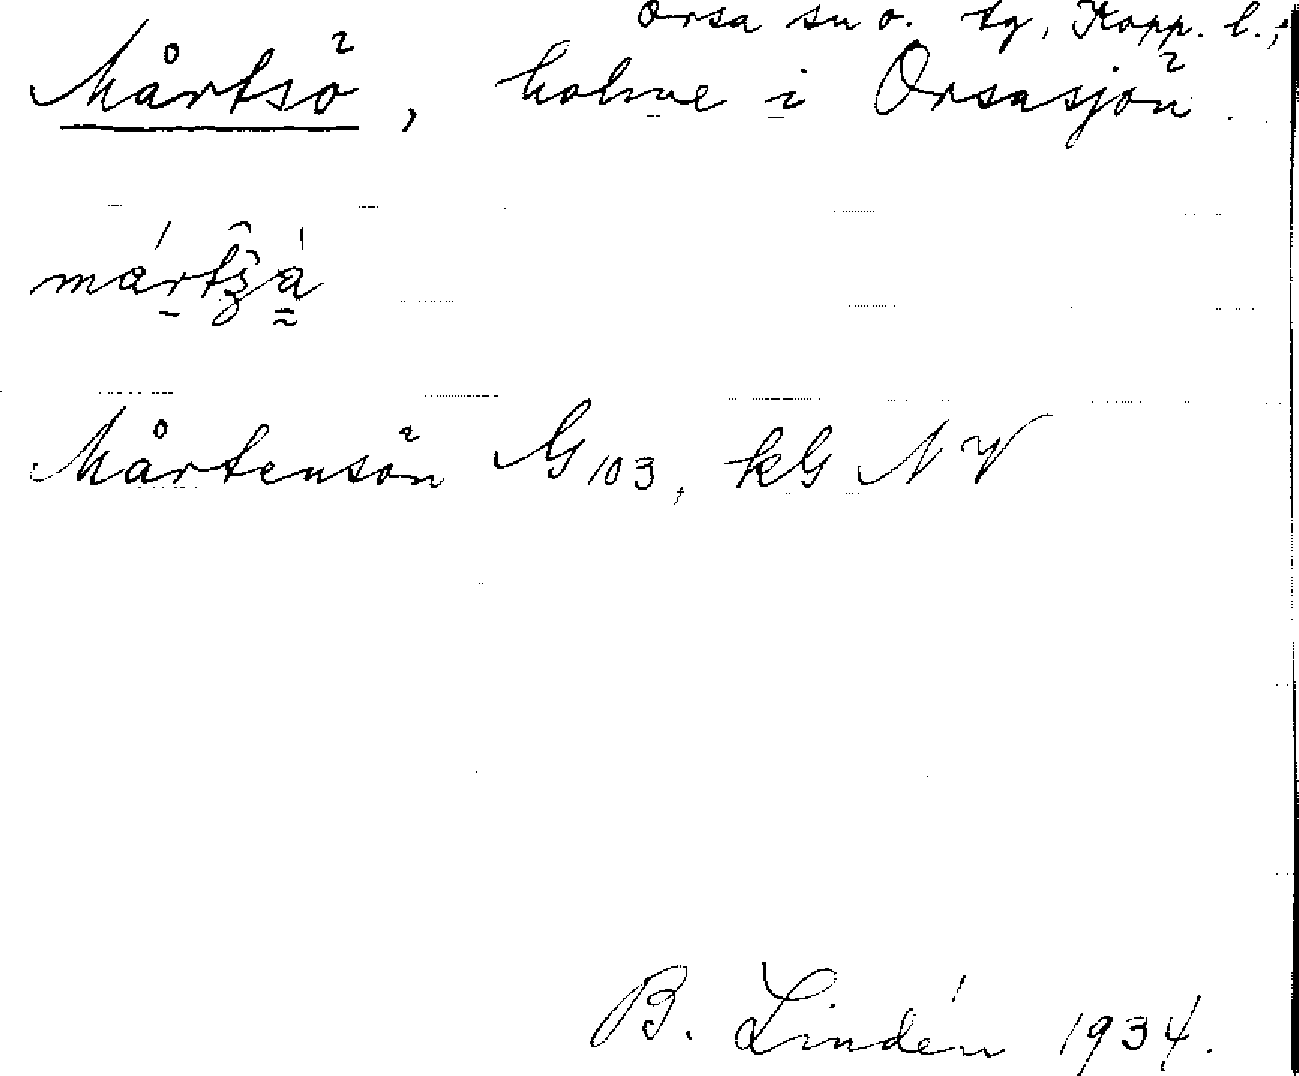 Orsa sn o. tg, Kopp. l.;
Mårtsö, holme i Orsasjön.
mártʒà
Mårtensön G103, kG NV
B. Lindén 1934.